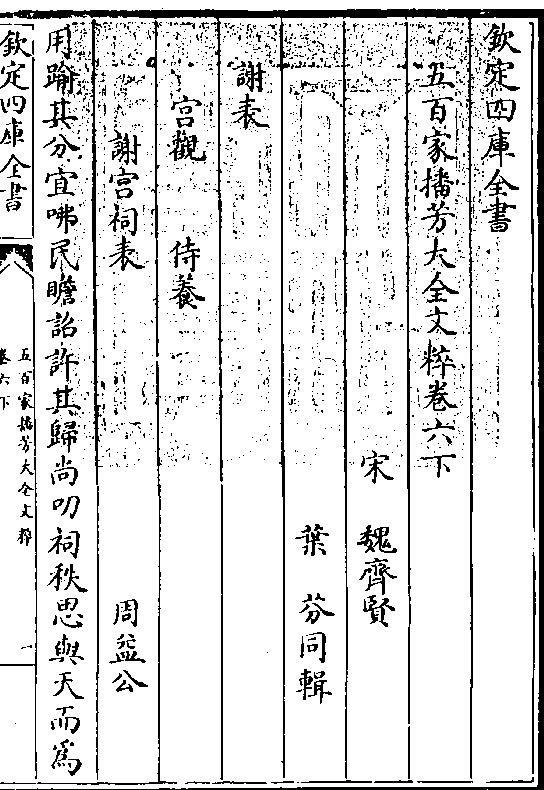 欽定四庫全書
五百家播芳大全文粹卷六下
宋 魏齊賢
葉芬同輯
謝表
宫觀 侍養
謝宫祠表 周益公
用踰其分宜咈民瞻詔許其歸尚叨祠秩思與天而為
欽定四庫全書
五百家播芳大全文粹
卷六下
一